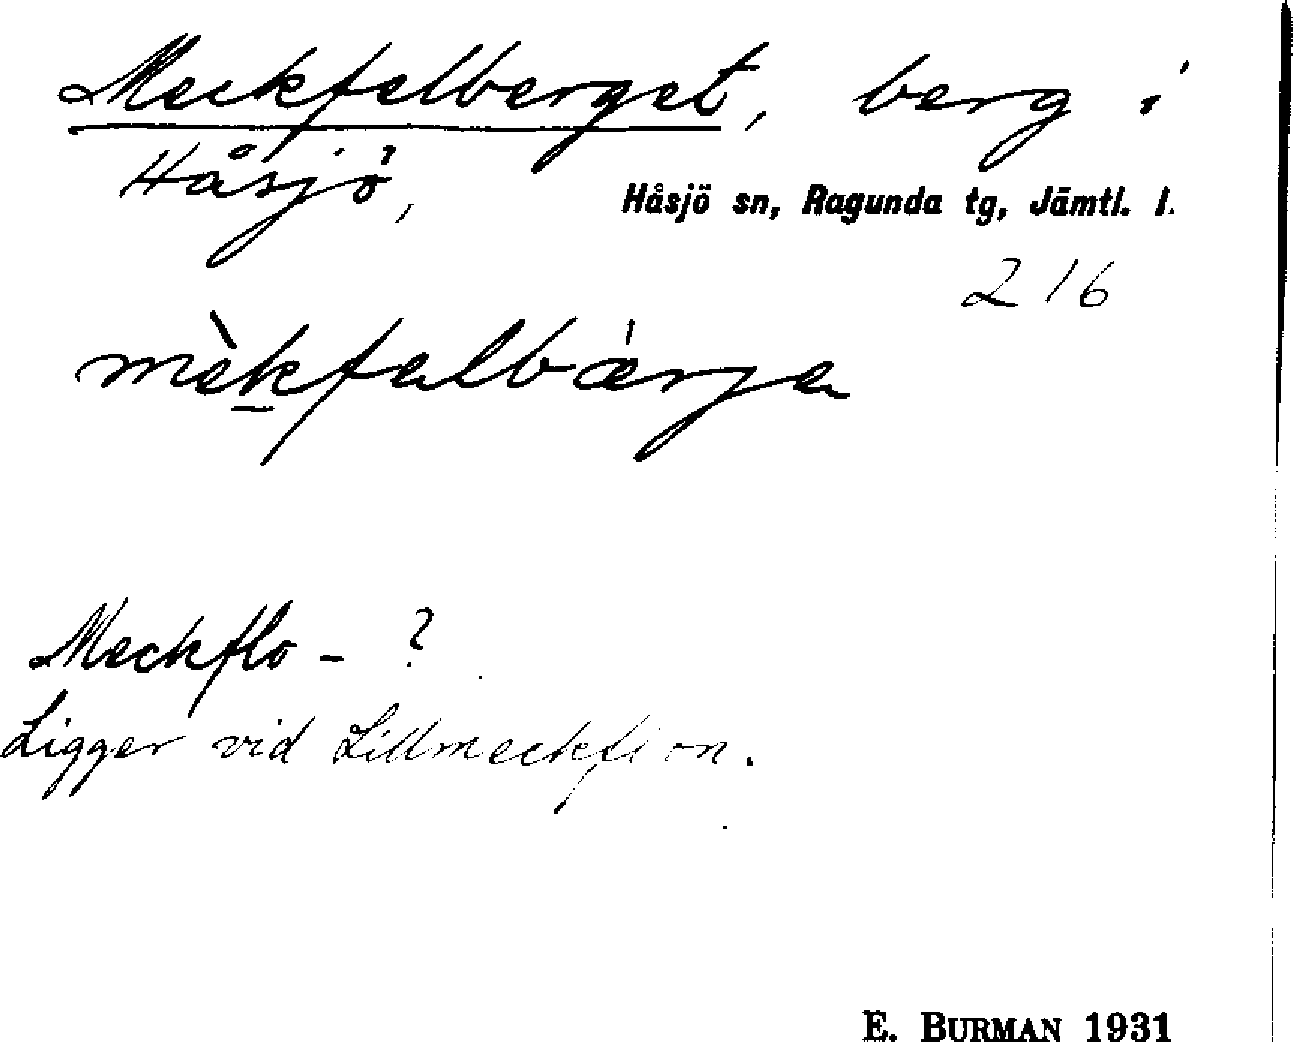 Meckfalberget, berg i
Håsjö,
Håsjö sn, Ragunda tg, Jämtl. l.
216
mèkfalbárja
Meckflo- ?
Ligger vid Lillmeckflon.
E. BURMAN 1931